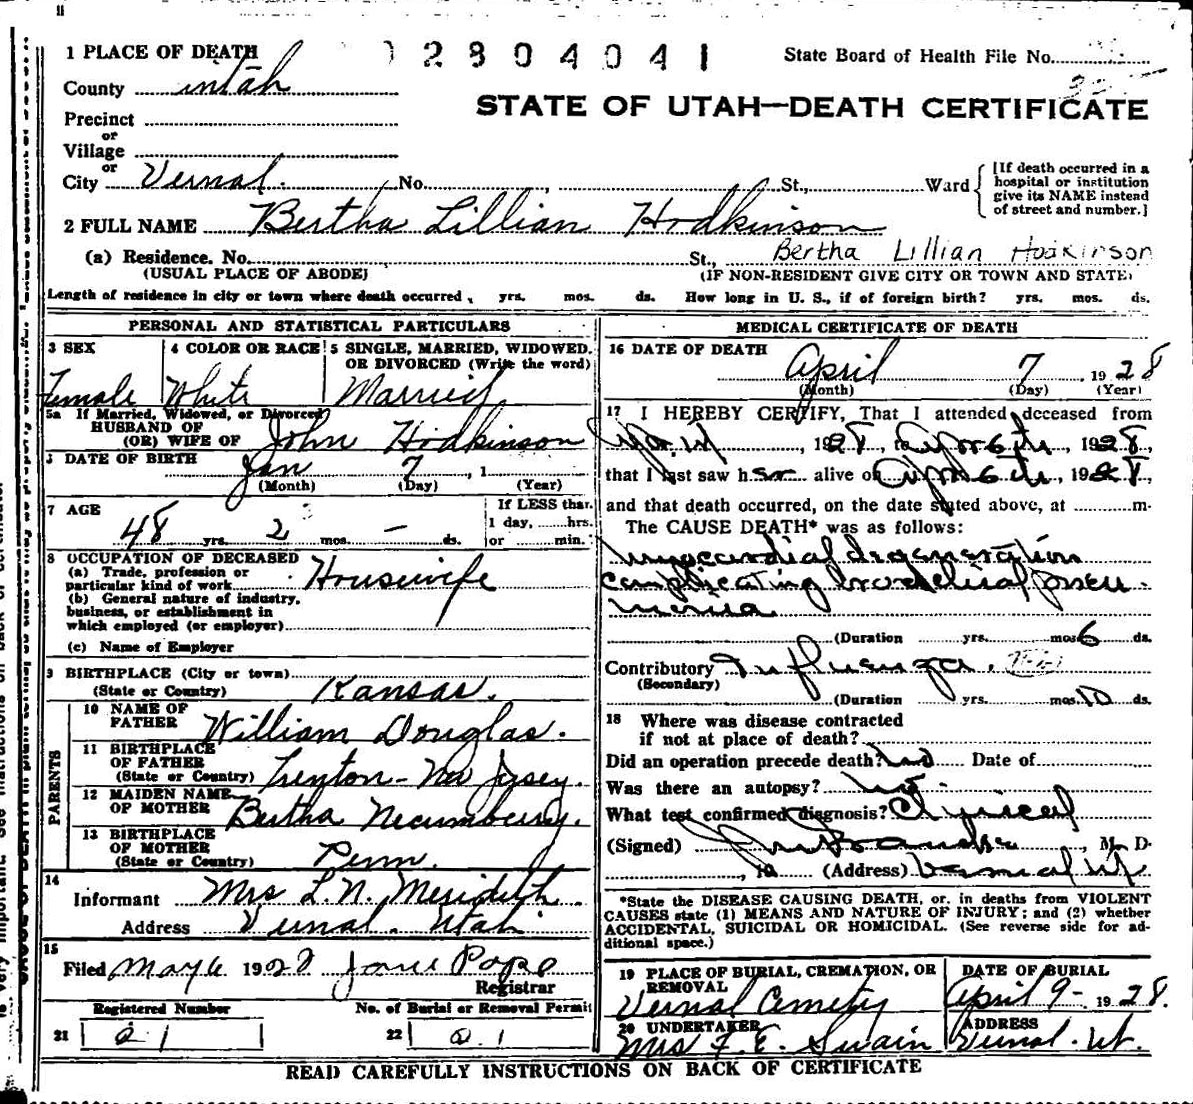 1 PLACE OF DEATH
2804041
State Board of Health File No.
County Uintah
STATE OF UTAH—DEATH CERTIFICATE
Precinct
or
Village
or
City Vernal. No. , St., Ward
[If death occurred in a hospital or institution give its NAME instead of street and number.]
2 FULL NAME Bertha Lillian Hodkinson
Bertha Lillian Hodkinson
(a) Residence. No. St.,
(USUAL PLACE OF ABODE) (IF NON-RESIDENT GIVE CITY OR TOWN AND STATE)
Length of residence in city or town where death occurred, yrs. mos. ds. How long in U. S., if of foreign birth? yrs. mos. ds.
PERSONAL AND STATISTICAL PARTICULARS
3 SEX 4 COLOR OR RACE 5 SINGLE, MARRIED, WIDOWED, OR DIVORCED (Write the word)
Female White Married
5a If Married, Widowed, or Divorced
HUSBAND OF
(OR) WIFE OF John Hodkinson
DATE OF BIRTH Jan 7, 1
(Month) (Day) (Year)
7 AGE If LESS than
48 yrs. 2 mos. – ds. 1 day, hrs.
or min.
8 OCCUPATION OF DECEASED
(a) Trade, profession or
particular kind of work Housewife
(b) General nature of industry,
business, or establishment in
which employed (or employer)
(c) Name of Employer
9 BIRTHPLACE (City or town)
(State or Country) Kansas.
PARENTS
10 NAME OF
FATHER William Douglas.
11 BIRTHPLACE
OF FATHER
(State or Country) Trenton - New Jersey.
12 MAIDEN NAME
OF MOTHER Bertha
13 BIRTHPLACE
OF MOTHER
(State or Country) Penn.
14
Informant Mrs L. N. Merideth
Address Vernal. Utah
15
Filed May 6 1928 Pope
Registrar
Registered Number No. of Burial or Removal Permit
21 21 22 21
MEDICAL CERTIFICATE OF DEATH
16 DATE OF DEATH
April 7, 1928
(Month) (Day) (Year)
17 I HEREBY CERTIFY, That I attended deceased from
, 1928, to Apr 6th, 1928,
that I last saw her alive on Apr 6th, 1928,
and that death occurred, on the date stated above, at m.
The CAUSE DEATH* was as follows:
Myocardial degeneration
complicating bronchial pneu-
monia
(Duration yrs. mos. 6 ds.
Contributory Influenza.
(Secondary)
(Duration yrs. mos. 10 ds.
18 Where was disease contracted
if not at place of death?
Did an operation precede death? no Date of
Was there an autopsy? no
What test confirmed diagnosis? Clinical
(Signed) , M. D.
, 19 (Address) Vernal Ut.
*State the DISEASE CAUSING DEATH, or, in deaths from VIOLENT
CAUSES state (1) MEANS AND NATURE OF INJURY; and (2) whether
ACCIDENTAL, SUICIDAL OR HOMICIDAL. (See reverse side for ad-
ditional space.)
19 PLACE OF BURIAL, CREMATION, OR REMOVAL DATE OF BURIAL
Vernal Cemetery April 9 - 1928.
20 UNDERTAKER ADDRESS
Mrs F. E. Swain Vernal. Ut.
READ CAREFULLY INSTRUCTIONS ON BACK OF CERTIFICATE